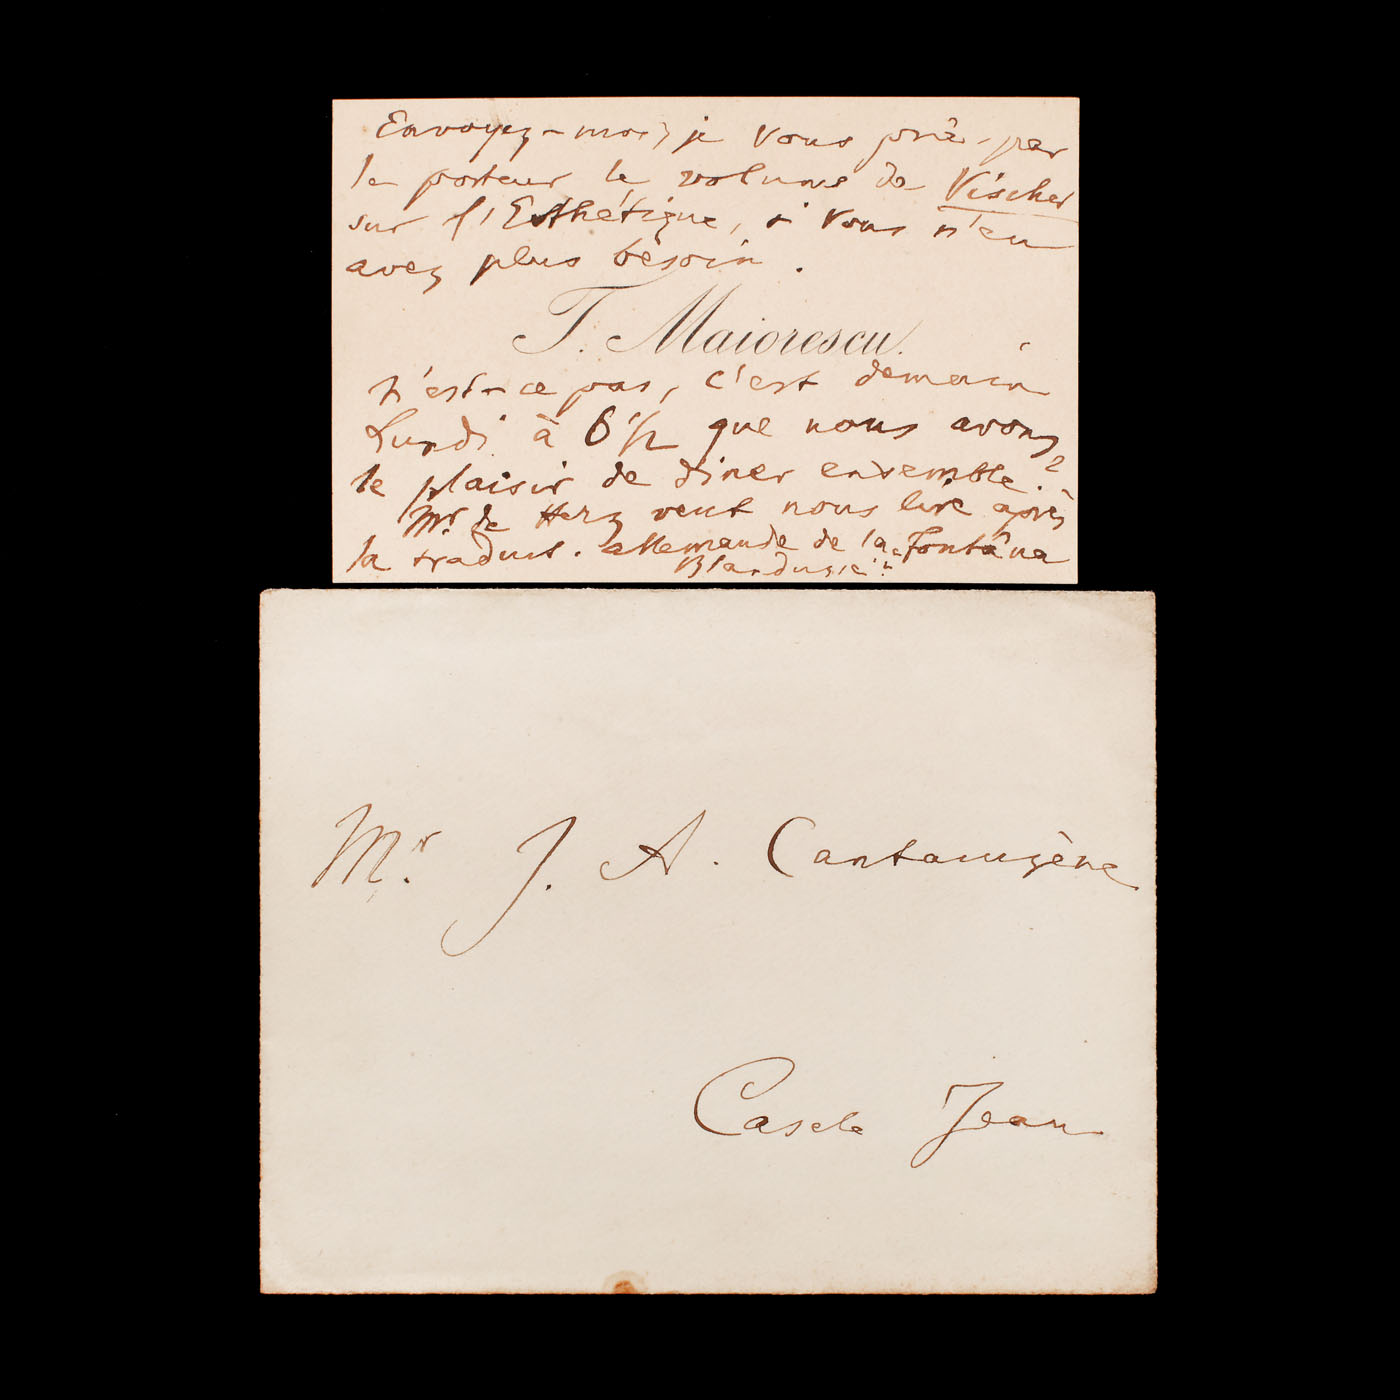 Envoyez-moi, je vous prie, par
le porteur le volume de Vischer
sur l'Esthétique, si vous n'en
avez plus besoin.
T. Maiorescu.
N'est-ce pas, c'est demain
Lundi à 6 1/2 que nous avons
le plaisir de dîner ensemble?
Mr. de Herz veut nous lire après
la traduct. allemande de la „Fontâna
Blandusiei“.
Mr. J. A. Cantacuzène
Jean